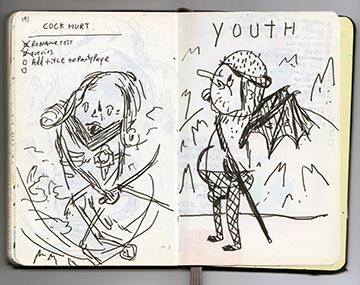 COCK HURT.
RENAME TEST
QUERIES
Add title to PartyPage
YOUTH